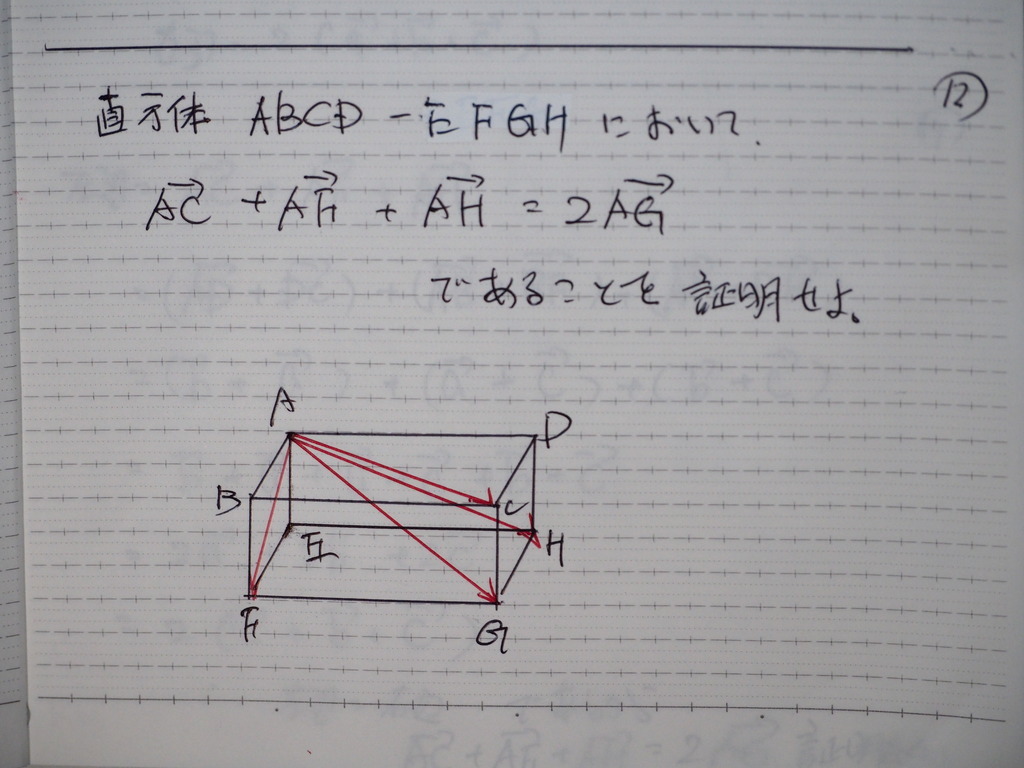 ⑫
直方体 ABCD-EFGHにおいて.
$\overrightarrow{AC} + \overrightarrow{AF} + \overrightarrow{AH} = 2\overrightarrow{AG}$
であることを証明せよ。
A
D
B
C
E
H
F
G